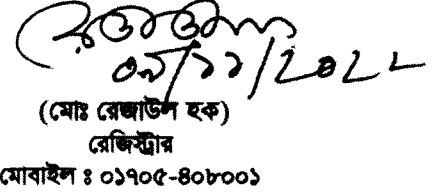 ০৯/১১/২০২২
(মোঃ রেজাউল হক)
রেজিস্ট্রার
মোবাইল ঃ ০১৭০৫-৪০৮০০১